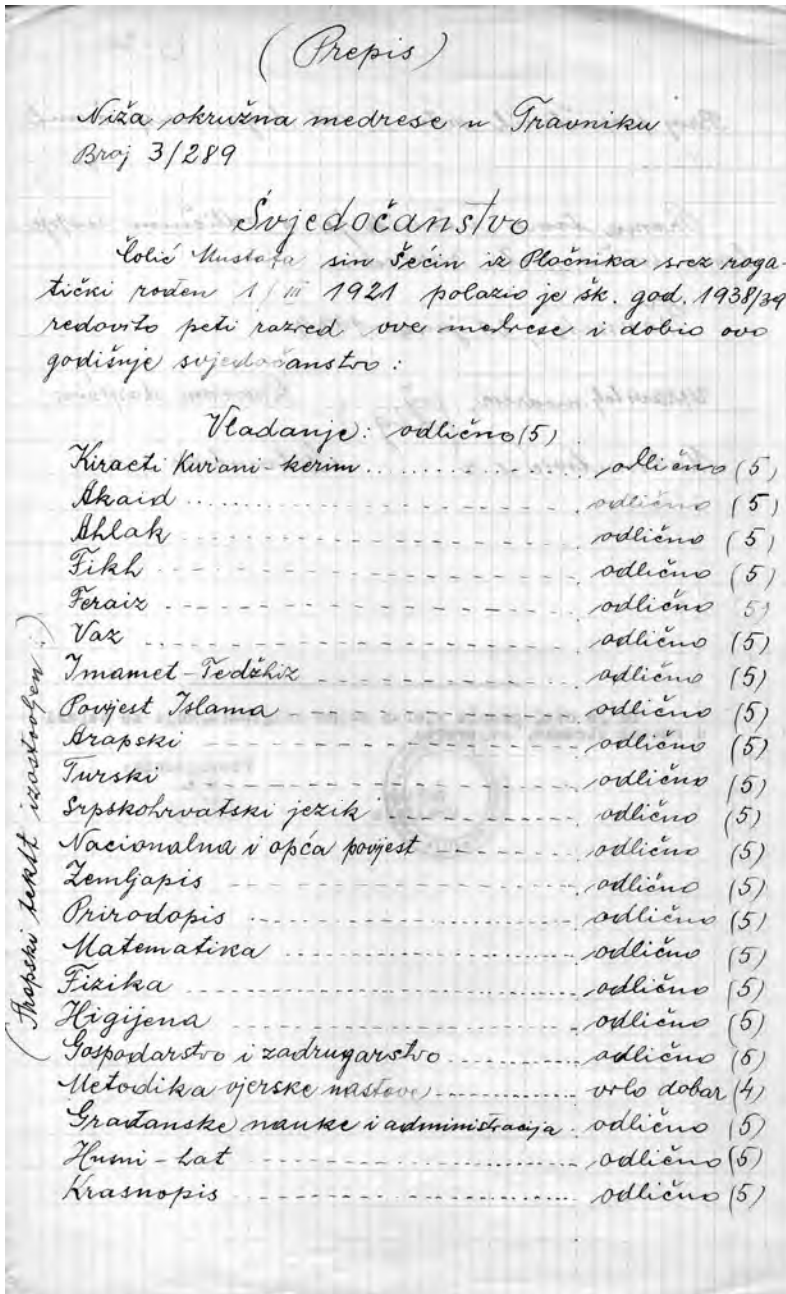 (Prepis)
Niža okružna medrese u Travniku
Broj 3/289
Svjedočanstvo
Čolić Mustafa sin Šećin iz Pločnika srez roga-
tički rođen 1/III 1921 polazio je šk. god. 1938/39
redovito peti razred ove medrese i dobio ovo
godišnje svjedočanstvo:
Vladanje: odlično (5)
Kiraeti Kur'ani-kerim odlično (5)
Akaid odlično (5)
Ahlak odlično (5)
Fikh odlično (5)
Feraiz odlično 5)
Vaz odlično (5)
Imamet-Tedžhiz odlično (5)
Povijest Islama odlično (5)
Arapski odlično (5)
Turski odlično (5)
Srpskohrvatski jezik odlično (5)
Nacionalna i opća povijest odlično (5)
Zemljopis odlično (5)
Prirodopis odlično (5)
Matematika odlično (5)
Fizika odlično (5)
Higijena odlično (5)
Gospodarstvo i zadrugarstvo odlično (5)
Metodika vjerske nastave vrlo dobar (4)
Građanske nauke i administracija odlično (5)
Husni-hat odlično (5)
Krasnopis odlično (5)
(Arapski tekst izostavljen.)